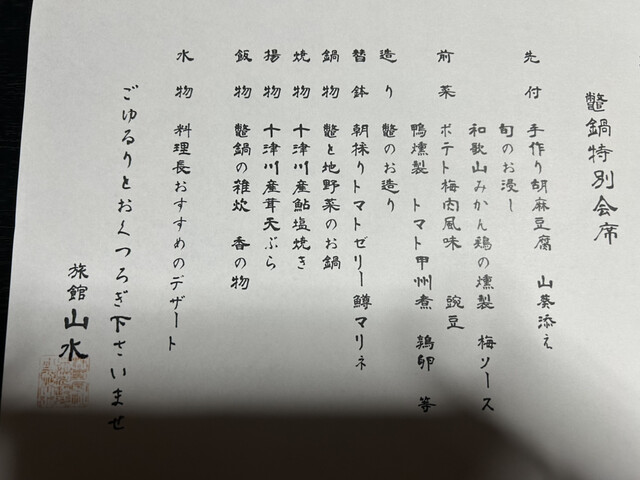 鼈鍋特別会席
先付 手作り胡麻豆腐 山葵添え
旬のお浸し
和歌山みかん鶏の燻製 梅ソース
前菜 ポテト梅肉風味 豌豆
鴨燻製 トマト甲州煮 鶉卵 等
造り 鼈のお造り
替鉢 朝採りトマトゼリー鱒マリネ
鍋物 鼈と地野菜のお鍋
焼物 十津川産鮎塩焼き
揚物 十津川産茸天ぷら
飯物 鼈鍋の雑炊 香の物
水物 料理長おすすめのデザート
ごゆるりとおくつろぎ下さいませ
旅館山水